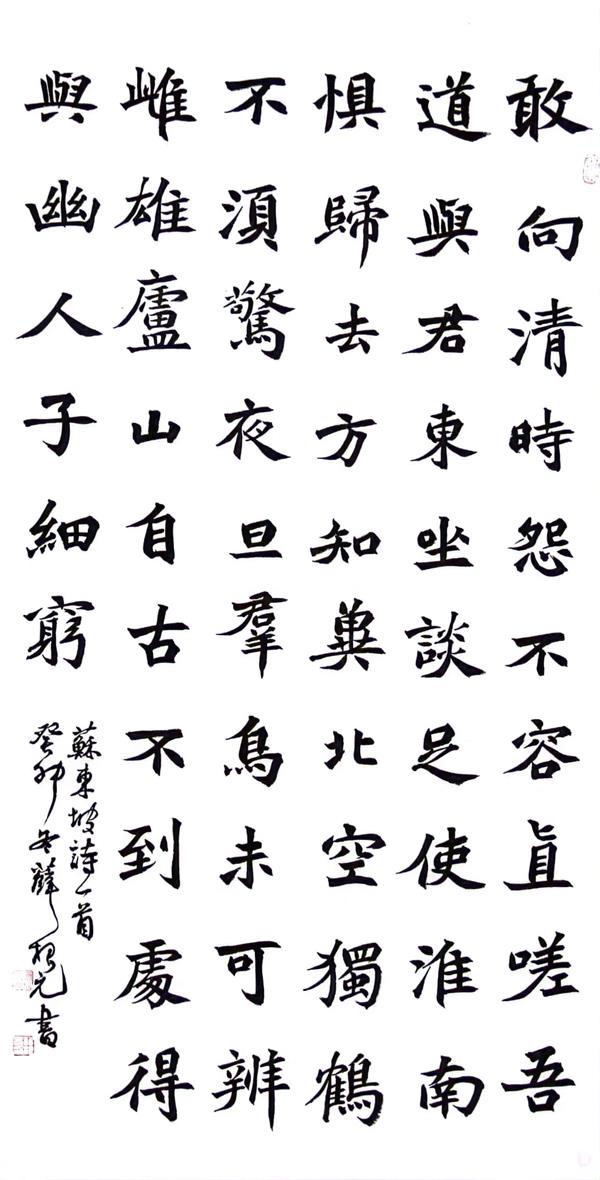 敢向清時怨不容直嗟吾
道與君東坐談足使淮南
惧歸去方知冀北空獨鶴
不須驚夜旦羣鳥未可辨
雌雄廬山自古不到處得
與幽人子細窮
蘇東坡詩一首
癸卯冬薛元書